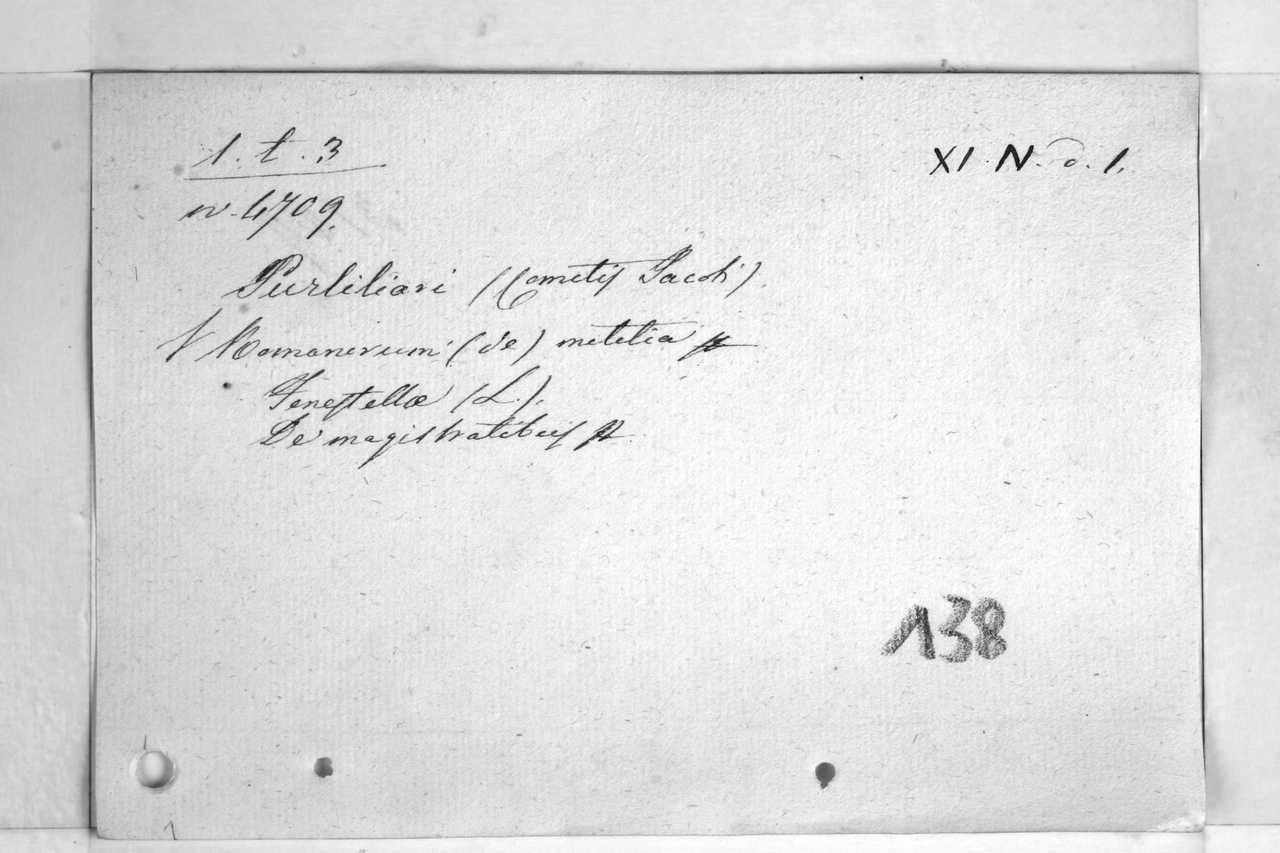 1. t. 3
XI. N. d. 1.
nr. 4709.
Purliliari (Cometis Jacobi).
Romanorum (de) militia
Fenestellæ (L.).
De magistratibus
138